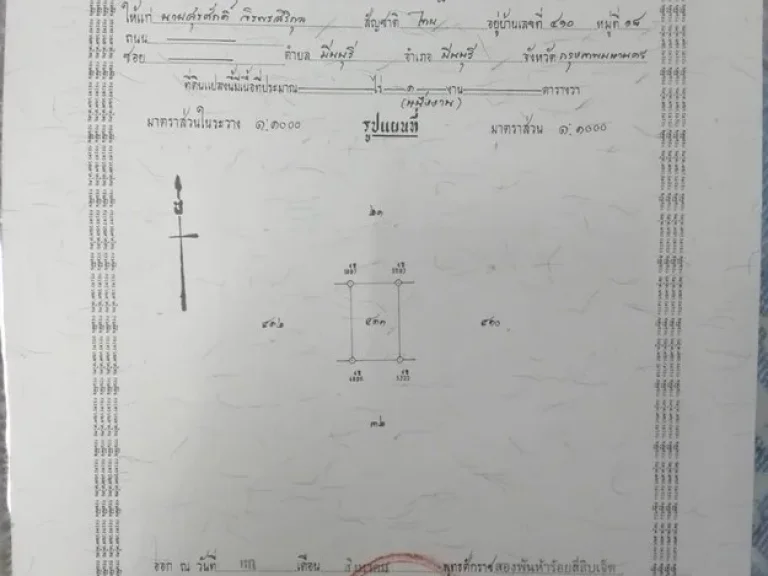 ให้แก่ นายสุรศักดิ์ จิรพรศิริกุล สัญชาติ ไทย อยู่บ้านเลขที่ ๔๑๐ หมู่ที่ ๑๘
ถนน
ซอย ตำบล มีนบุรี อำเภอ มีนบุรี จังหวัด กรุงเทพมหานคร
ที่ดินแปลงนี้มีเนื้อที่ประมาณ ไร่ ๑ งาน ตารางวา
(หนึ่งงาน)
มาตราส่วนในระวาง ๑:๑๐๐๐ รูปแผนที่ มาตราส่วน ๑:๑๐๐๐
น
๒๑
๔๑๒ ๔๑๑ ๔๑๐
๓๒
ออก ณ วันที่ เดือน พุทธศักราช สองพันห้าร้อยสี่สิบเจ็ด